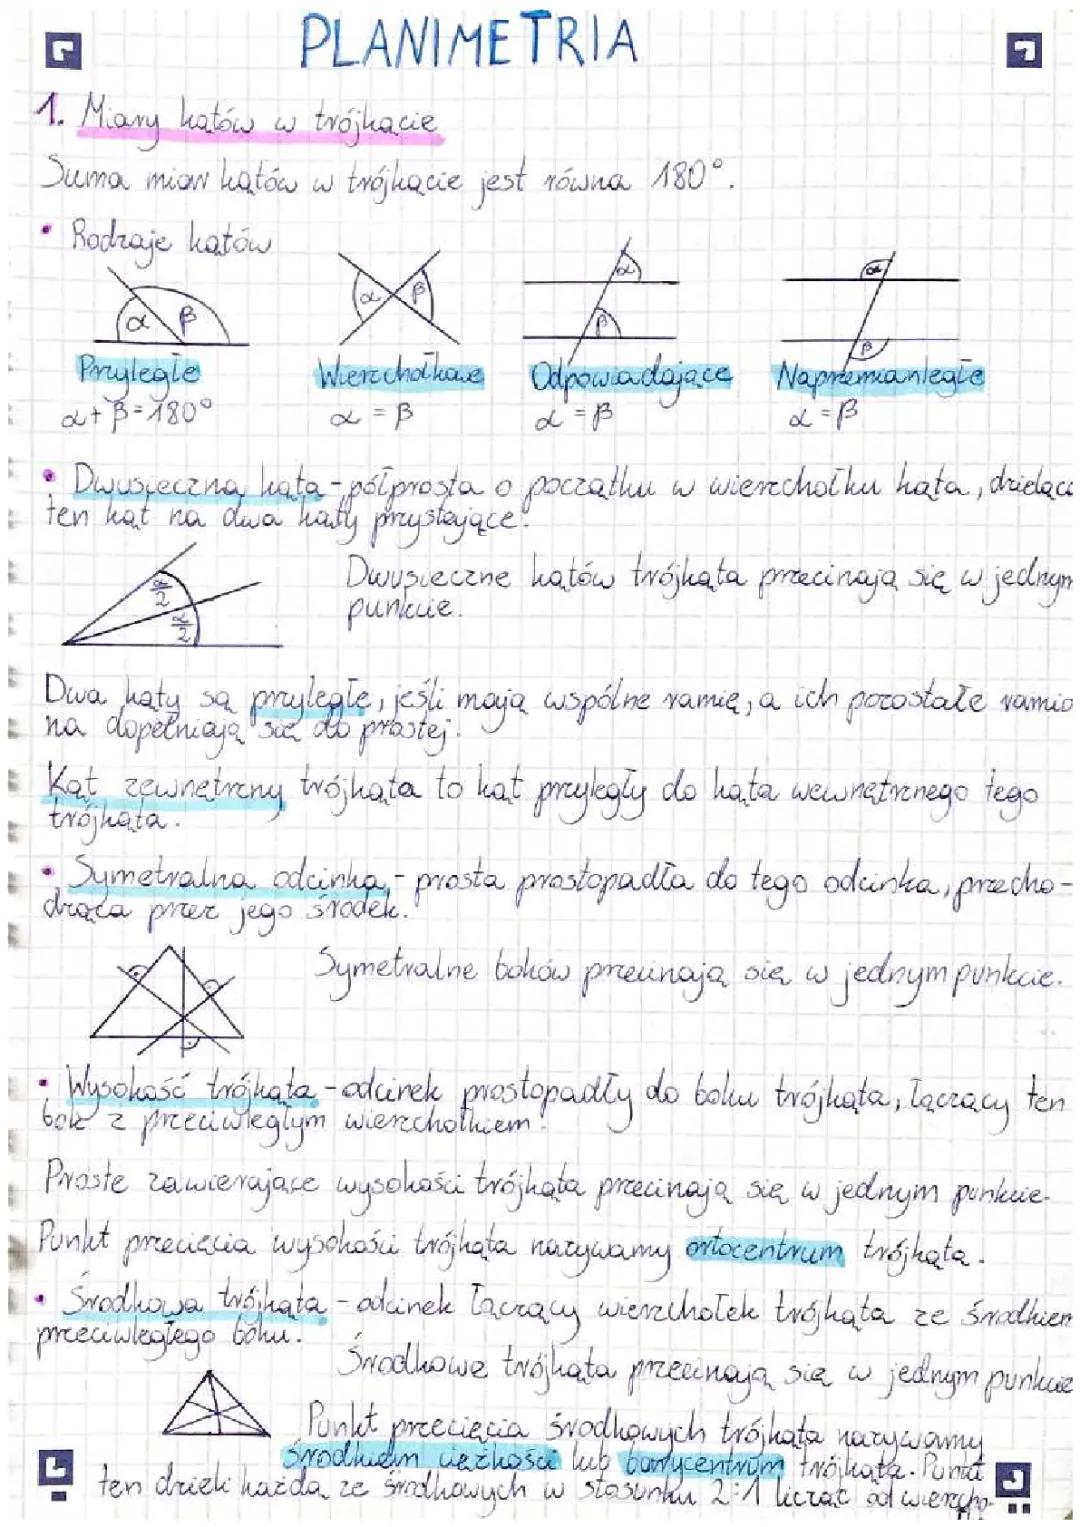 PLANIMETRIA
1. Miary kątów w trójkącie
Suma miar kątów w trójkącie jest równa 180°.
• Rodzaje kątów
α β
α β
α β
α β
Przyległe Wierzchołkowe Odpowiadające Naprzemianległe
α + β = 180° α = β α = β α = β
• Dwusieczna kąta - półprosta o początku w wierzchołku kąta, dzieląca
ten kąt na dwa kąty przystające.
α/2
α/2
Dwusieczne kątów trójkąta przecinają się w jednym
punkcie.
Dwa kąty są przyległe, jeśli mają wspólne ramię, a ich pozostałe ramio
na dopełniają się do prostej.
Kąt zewnętrzny trójkąta to kąt przyległy do kąta wewnętrznego tego
trójkąta.
• Symetralna odcinka - prosta prostopadła do tego odcinka, przecho-
dząca przez jego środek.
Symetralne boków przecinają się w jednym punkcie.
• Wysokość trójkąta - odcinek prostopadły do boku trójkąta, łączący ten
bok z przeciwległym wierzchołkiem.
Proste zawierające wysokości trójkąta przecinają się w jednym punkcie.
Punkt przecięcia wysokości trójkąta nazywamy ortocentrum trójkąta.
• Środkowa trójkąta - odcinek łączący wierzchołek trójkąta ze środkiem
przeciwległego boku.
Środkowe trójkąta przecinają się w jednym punkcie
Punkt przecięcia środkowych trójkąta nazywamy
środkiem ciężkości lub barycentrum trójkąta. Punkt
ten dzieli każdą ze środkowych w stosunku 2:1 licząc od wierzcho-